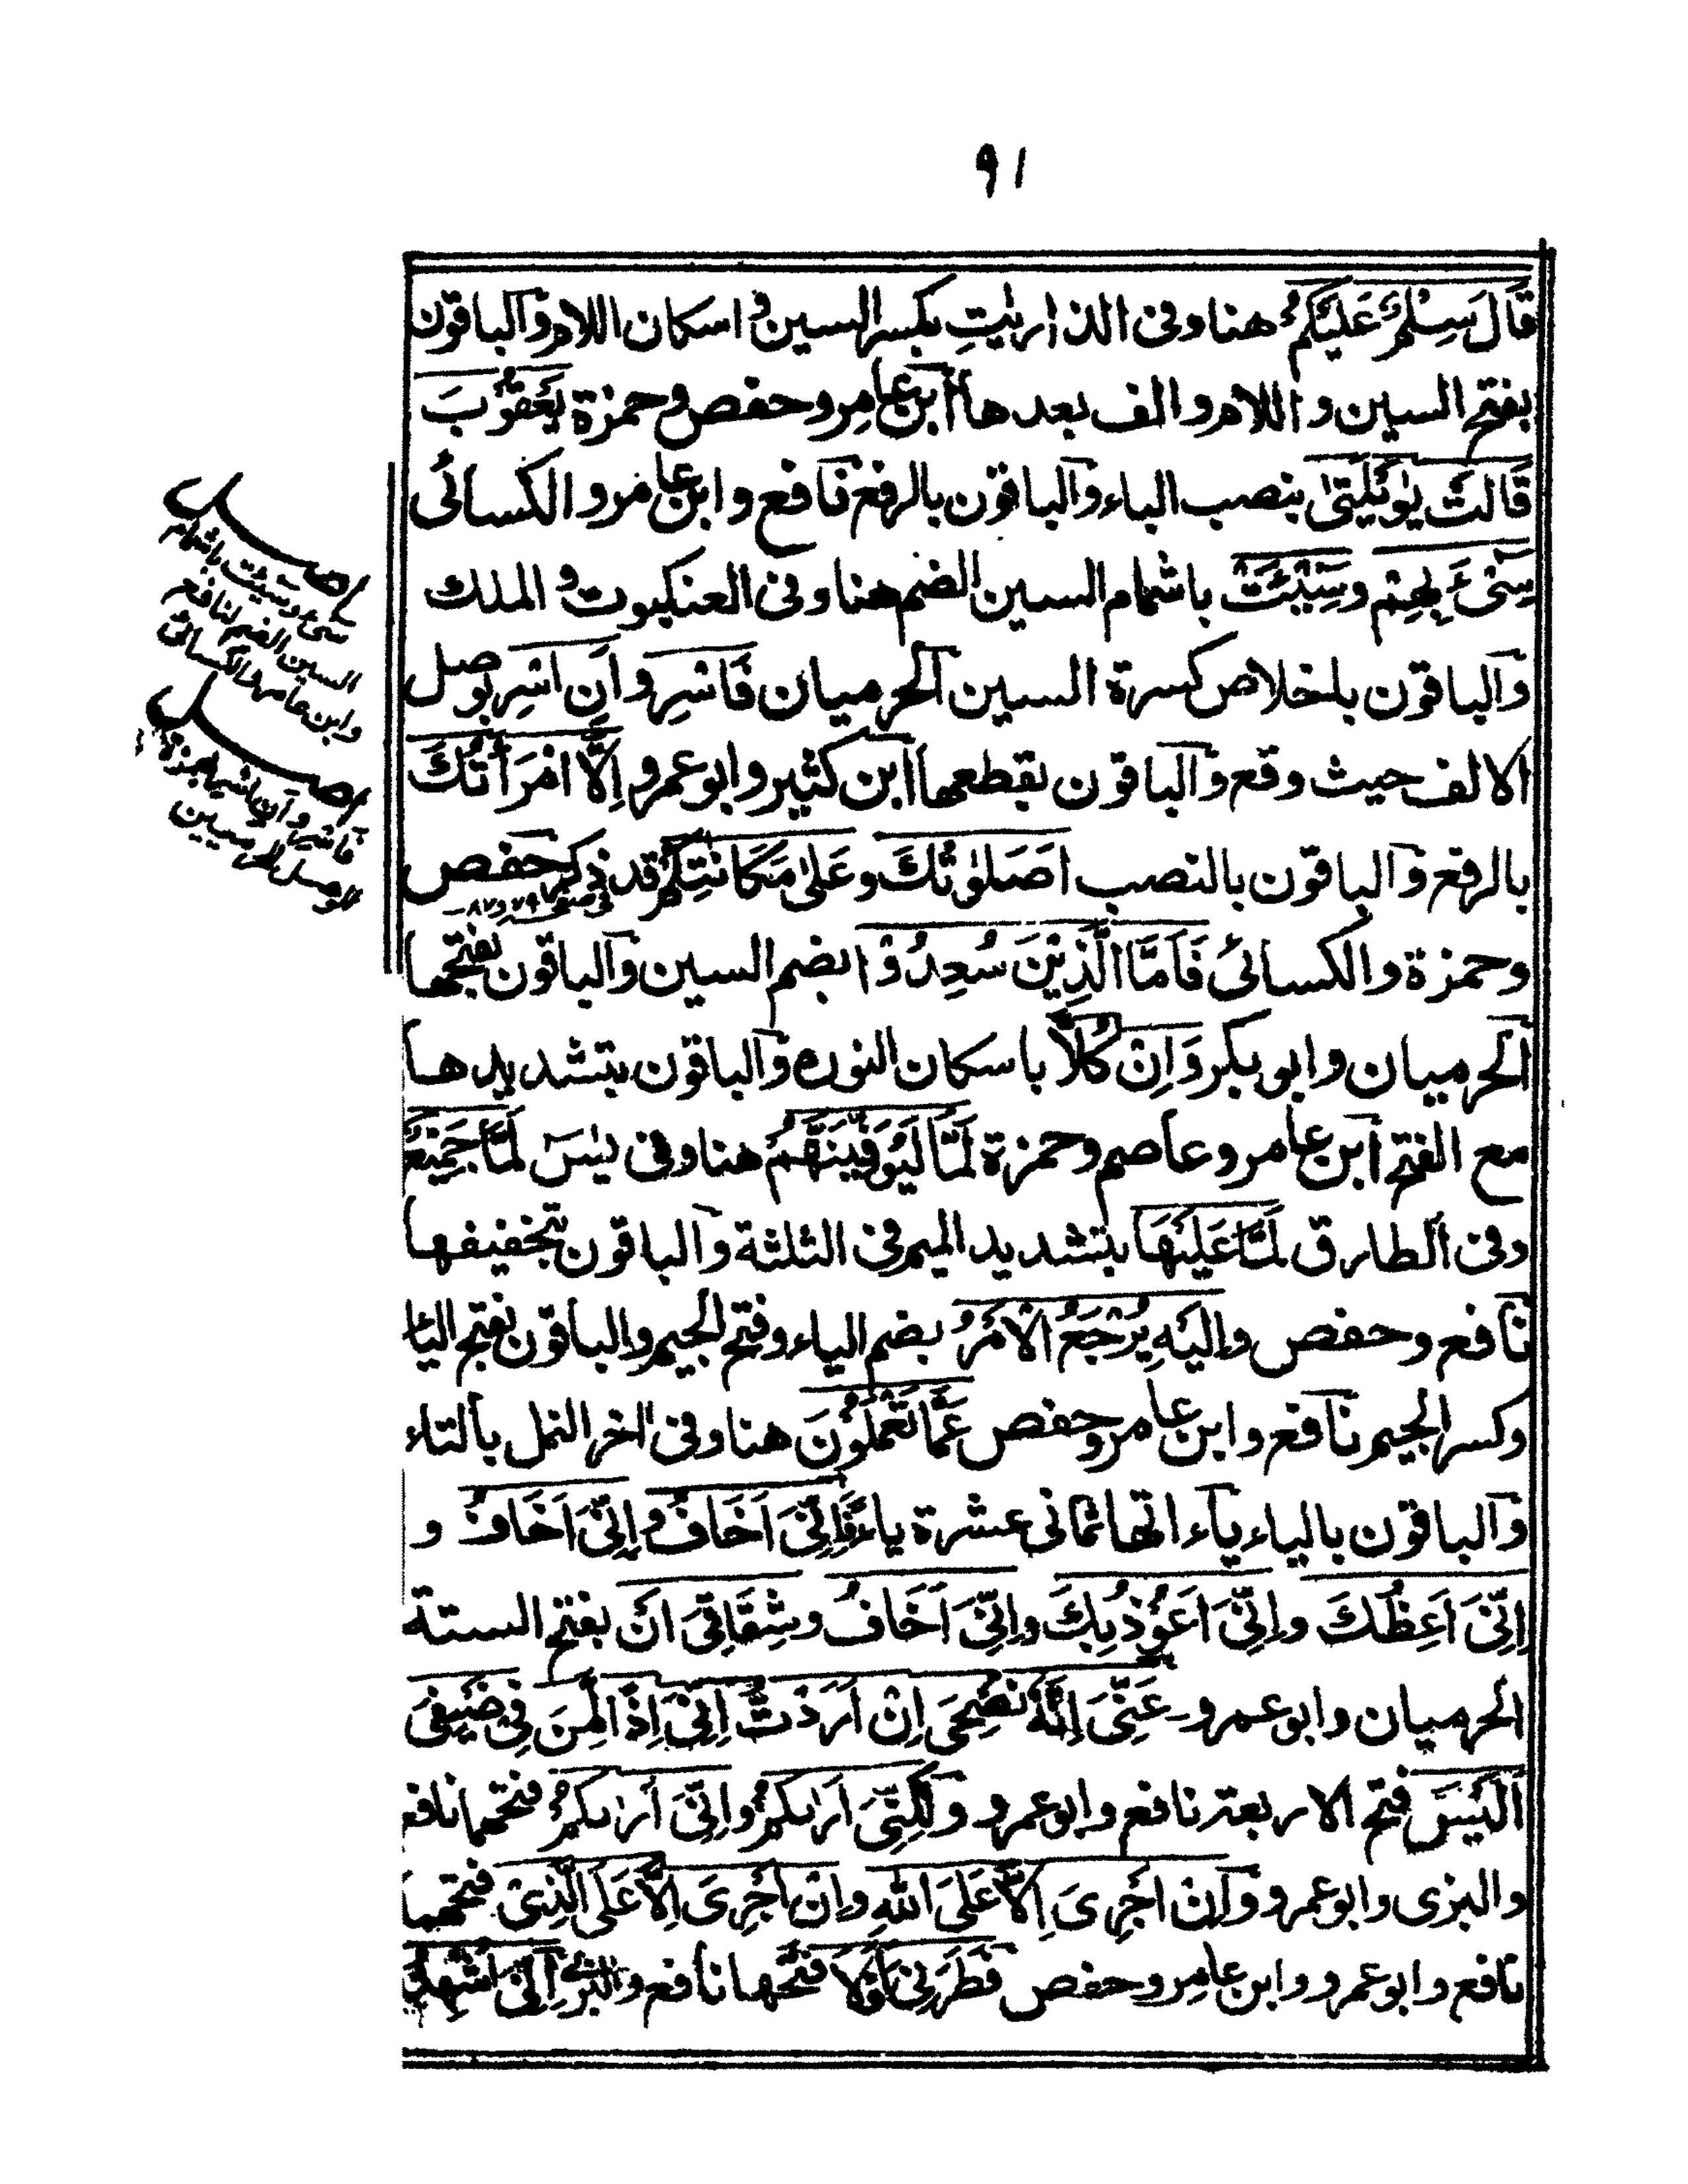 ٩١
قَالَ سِلْمٌ عَلَيْكُمْ هنا وفى الذاريٰتِ بكسر السين واسكان اللام والباقون
بفتح السين واللام والف بعدها ابن عامر وحفص وحمزة يَعْقُوْبَ
قَالَتْ يٰوَيْلَتٰى بنصب الباء والباقون بالرفع نافع وابن عامر والكسائى
سِىْٓءَ بِهِمْ وسِيْٓئَتْ باشمام السين الضم هنا وفى العنكبوت والملك
والباقون باخلاص كسرة السين الحرميان فَاسْرِ واَنِ اسْرِ بوصل
الالف حيث وقع والباقون بقطعها ابن كثير وابو عمرو اِلَّا امْرَاَتُكَ
بالرفع والباقون بالنصب اَصَلٰوتُكَ وعَلٰى مَكَانَتِكُمْ قد ذكر حفص
فى صفحه ٧٩ و ٨٧
وحمزة والكسائى فَاَمَّا الَّذِيْنَ سُعِدُوْا بضم السين والباقون بفتحها
الحرميان وابو بكر وَاِنْ كُلًّا باسكان النون والباقون بتشديدها
مع الفتح ابن عامر وعاصم وحمزة لَمَّا لَيُوَفِّيَنَّهُمْ هنا وفى يٰسٓ لَمَّا جَمِيْعٌ
وفى الطارق لَمَّا عَلَيْهَا بتشديد الميم فى الثلثة والباقون بتخفيفها
نافع وحفص واِلَيْهِ يُرْجَعُ الْاَمْرُ بضم الياء وفتح الجيم والباقون بفتح الياء
وكسر الجيم نافع وابن عامر وحفص عَمَّا تَعْمَلُوْنَ هنا وفى اخر النمل بالتاء
والباقون بالياء ياءاتها ثمانى عشرة ياء فَاِنِّىَ اَخَافُ واِنِّىَ اَخَافُ و
اِنِّىَ اَعِظُكَ واِنِّىَ اَعُوْذُ بِكَ واِنِّىَ اَخَافُ وشِقَاقِىَ اَنْ بفتح الستة
الحرميان وابو عمرو عَنِّىَ اِنَّهٗ نُصْحِىَ اِنْ اَرَدْتُّ اِنِّىَ اِذًا لَّمِنَ فِى ضَيْفِىَ
اَلَيْسَ فتح الاربعة نافع وابو عمرو ولٰكِنِّىَ اَرٰىكُمْ واِنِّىَ اَرٰىكُمْ فتحهما نافع
والبزى وابو عمرو واِنْ اَجْرِىَ اِلَّا عَلَى اللهِ واِنْ اَجْرِىَ اِلَّا عَلَى الَّذِىْ فتحهما
نافع وابو عمرو وابن عامر وحفص فَطَرَنِىَ اَفَلَا فتحها نافع والبزى اِنِّىَ اُشْهِدُ
سىء وسيئت باشمام
السين الضم لنافع
وابن عامر والكسائى
فاسر وان اسر بهمزة
الوصل للحرميين